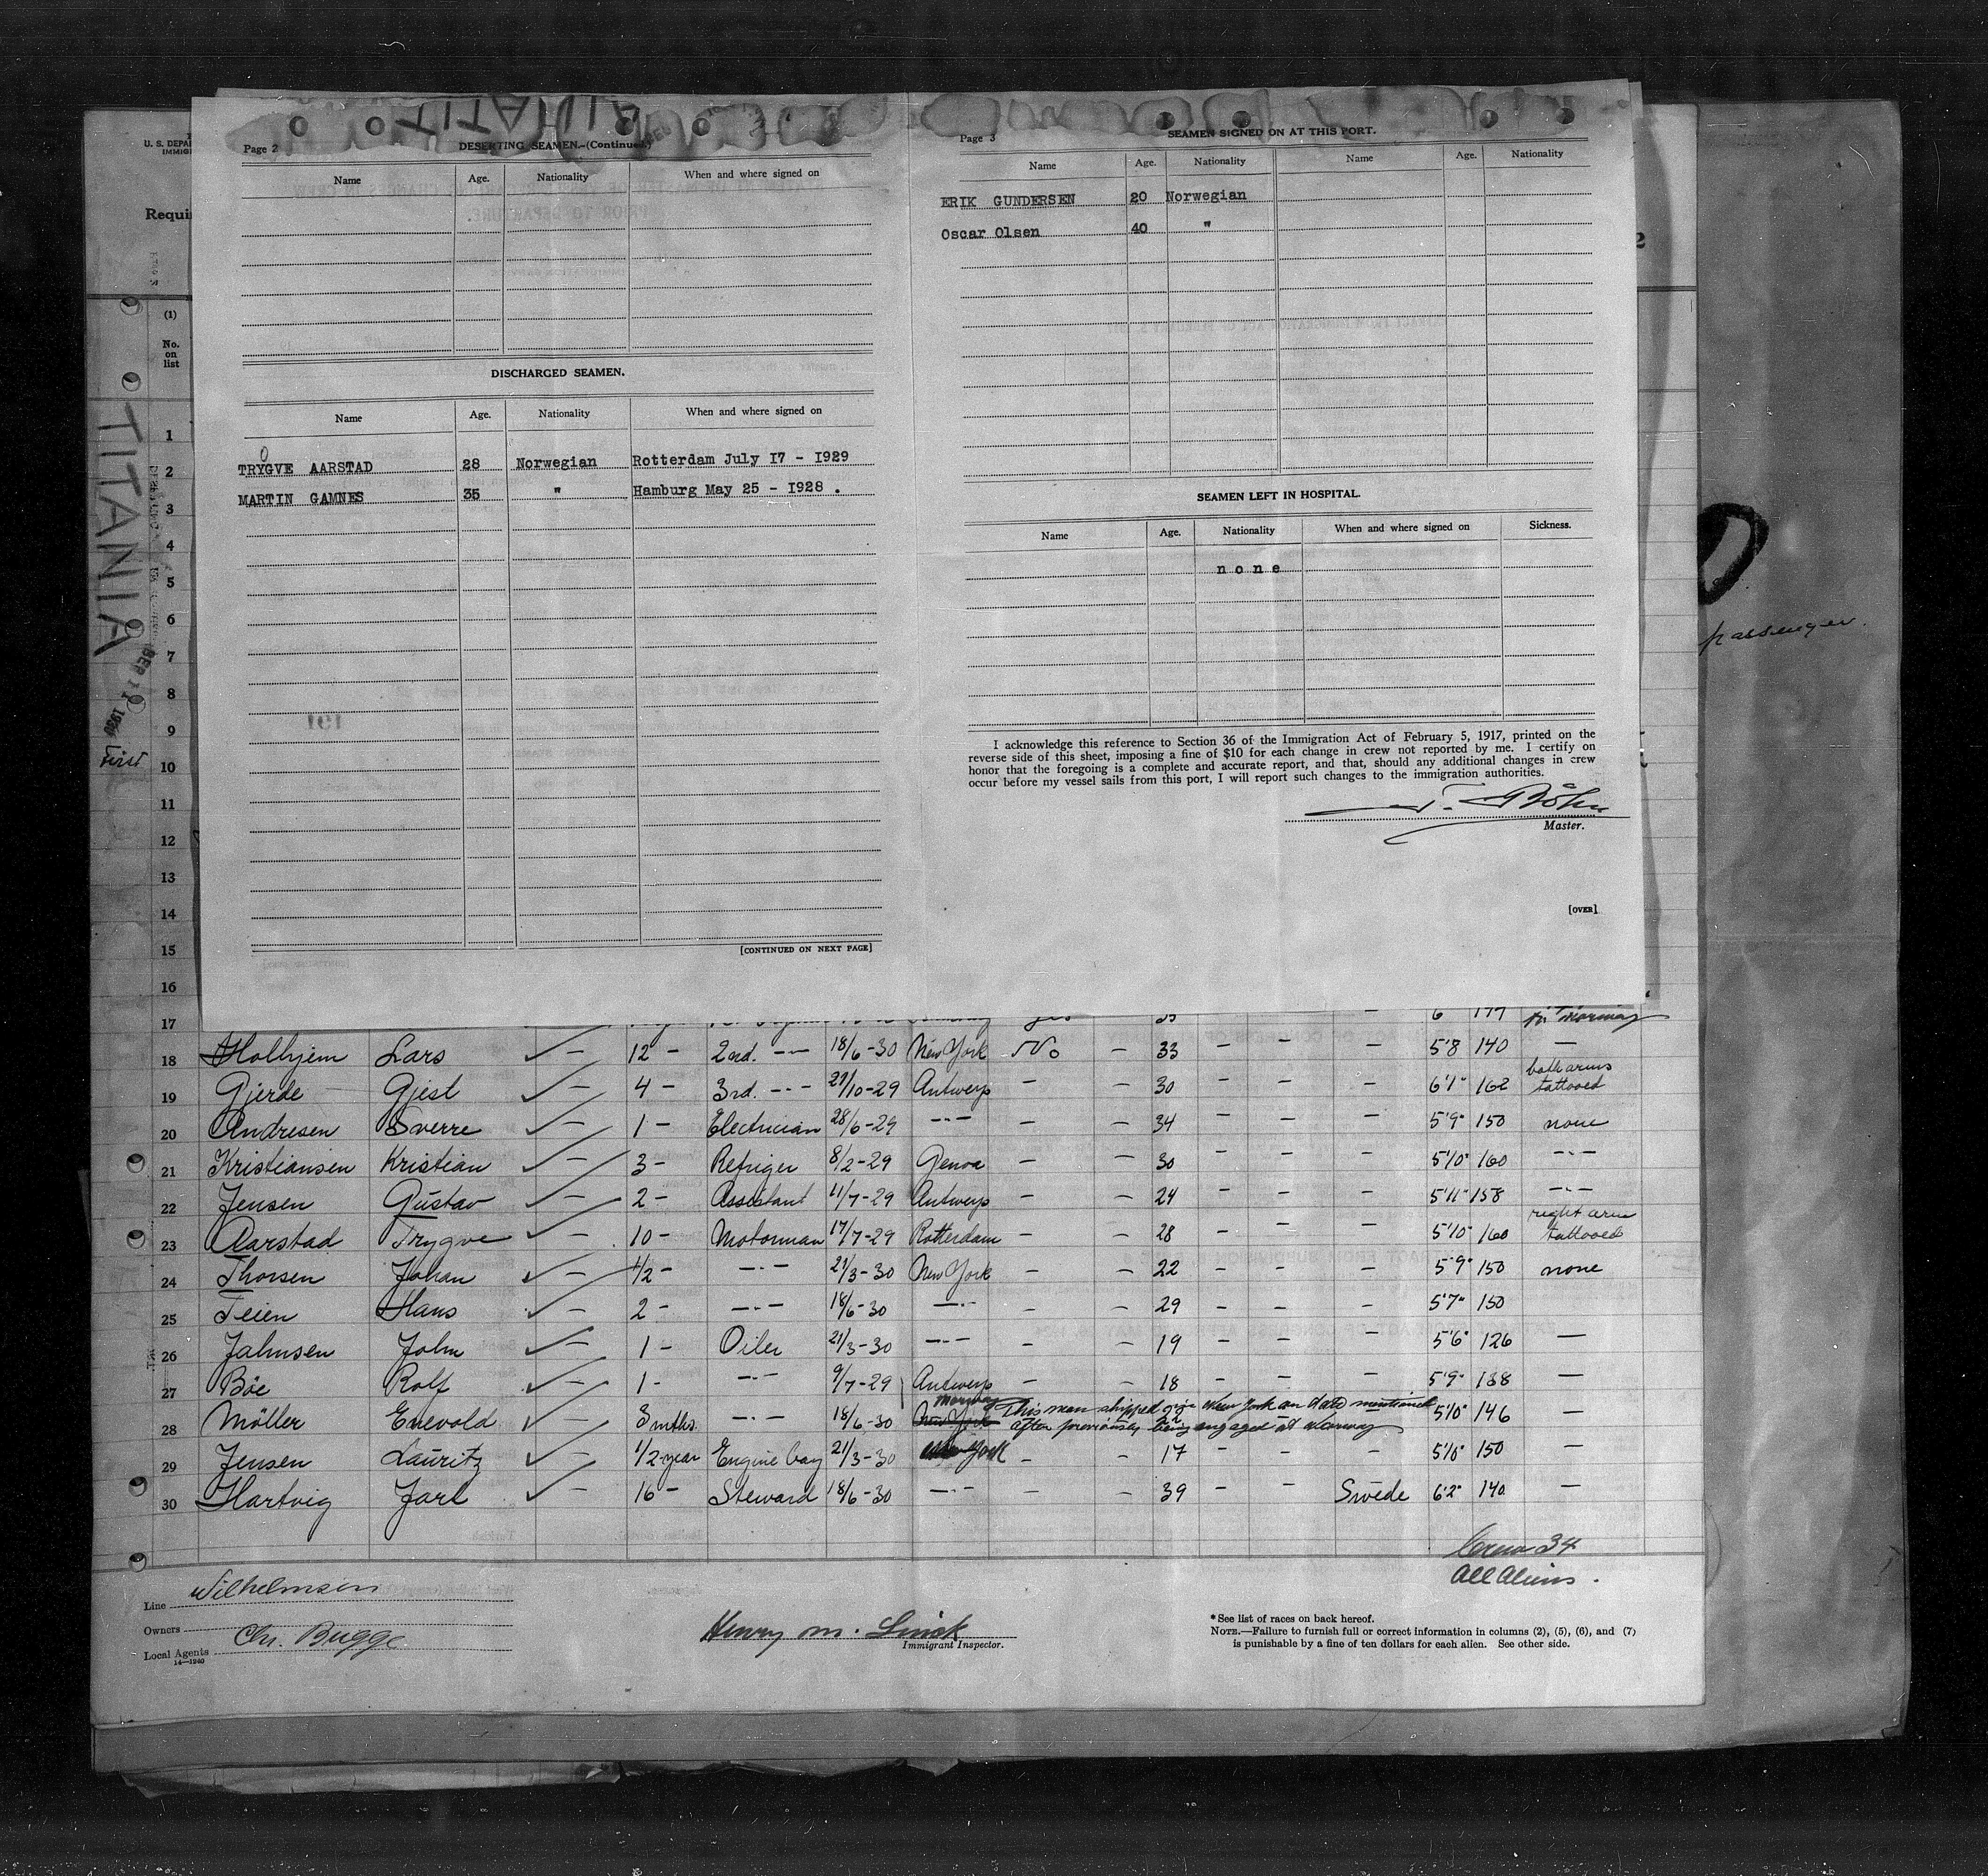 TITANIA
Page 2
DESERTING SEAMEN.-(Continued)
Name Age. Nationality When and where signed on
DISCHARGED SEAMEN.
Name Age. Nationality When and where signed on
TRYGVE AARSTAD 28 Norwegian Rotterdam July 17 - 1929
MARTIN GAMNES 35 " Hamburg May 25 - 1928 .
[CONTINUED ON NEXT PAGE]
Page 3
SEAMEN SIGNED ON AT THIS PORT.
Name Age. Nationality Name Age. Nationality
ERIK GUNDERSEN 20 Norwegian
Oscar Olsen 40 "
SEAMEN LEFT IN HOSPITAL.
Name Age. Nationality When and where signed on Sickness.
none
I acknowledge this reference to Section 36 of the Immigration Act of February 5, 1917, printed on the
reverse side of this sheet, imposing a fine of $10 for each change in crew not reported by me. I certify on
honor that the foregoing is a complete and accurate report, and that, should any additional changes in crew
occur before my vessel sails from this port, I will report such changes to the immigration authorities.
Master.
[OVER]
U. S. DEPA
IMMIG
Requi
(1)
No.
on
list
TITANIA
passenger.
1
2
3
4
5
6
7
8
9
10
11
12
13
14
15
16
17
18 Holhjem Lars ✓ — 12 - 2nd. -"- 18/6-30 New York No — 33 - - - 5'8 140 —
both arms
19 Gjerde Gjest ✓ — 4 - 3rd. -"- 27/10-29 Antwerp - — 30 - - - 6'1" 162 tattooed
20 Andresen Sverre ✓ — 1 - Electrician 28/6-29 -"- - — 34 - - - 5'9" 150 none
21 Kristiansen Kristian ✓ — 3 - Refriger 8/2-29 Genoa - — 30 - - - 5'10" 160 -"-
22 Jensen Gustav ✓ — 2 - Assistant 11/7-29 Antwerp - — 24 - - - 5'11" 158 -"-
right arm
23 Aarstad Trygve ✓ — 10 - Motorman 17/7-29 Rotterdam - — 28 - - - 5'10" 160 tattooed
24 Thorsen Johan ✓ — 1/2 - -"- 21/3-30 New York - — 22 - - - 5'9" 150 none
25 Teien Hans ✓ — 2 - -"- 18/6-30 -"- - — 29 - - - 5'7" 150
26 Jahnsen John ✓ — 1 - Oiler 21/3-30 -"- - — 19 - - - 5'6" 126 —
27 Böe Rolf ✓ — 1 - -"- 9/7-29 Antwerp - — 18 - - - 5'9" 138 —
28 Möller Enevold ✓ — 3 mths. -"- 18/6-30 New York This man shipped New York on date mentioned 5'10" 146 —
after previously being engaged at Norway
29 Jensen Lauritz ✓ — 1/2-year Engine boy 21/3-30 New York - — 17 - - - 5'10" 150 —
30 Hartvig Jarl ✓ — 16 - Steward 18/6-30 -"- - — 39 - - Swede 6'2" 140 —
Crew 34
All Aliens.
Line Wilhelmsen
Owners
Local Agents Chr. Bugge
14—1240
Henry M.
Immigrant Inspector.
* See list of races on back hereof.
NOTE.—Failure to furnish full or correct information in columns (2), (5), (6), and (7)
is punishable by a fine of ten dollars for each alien. See other side.